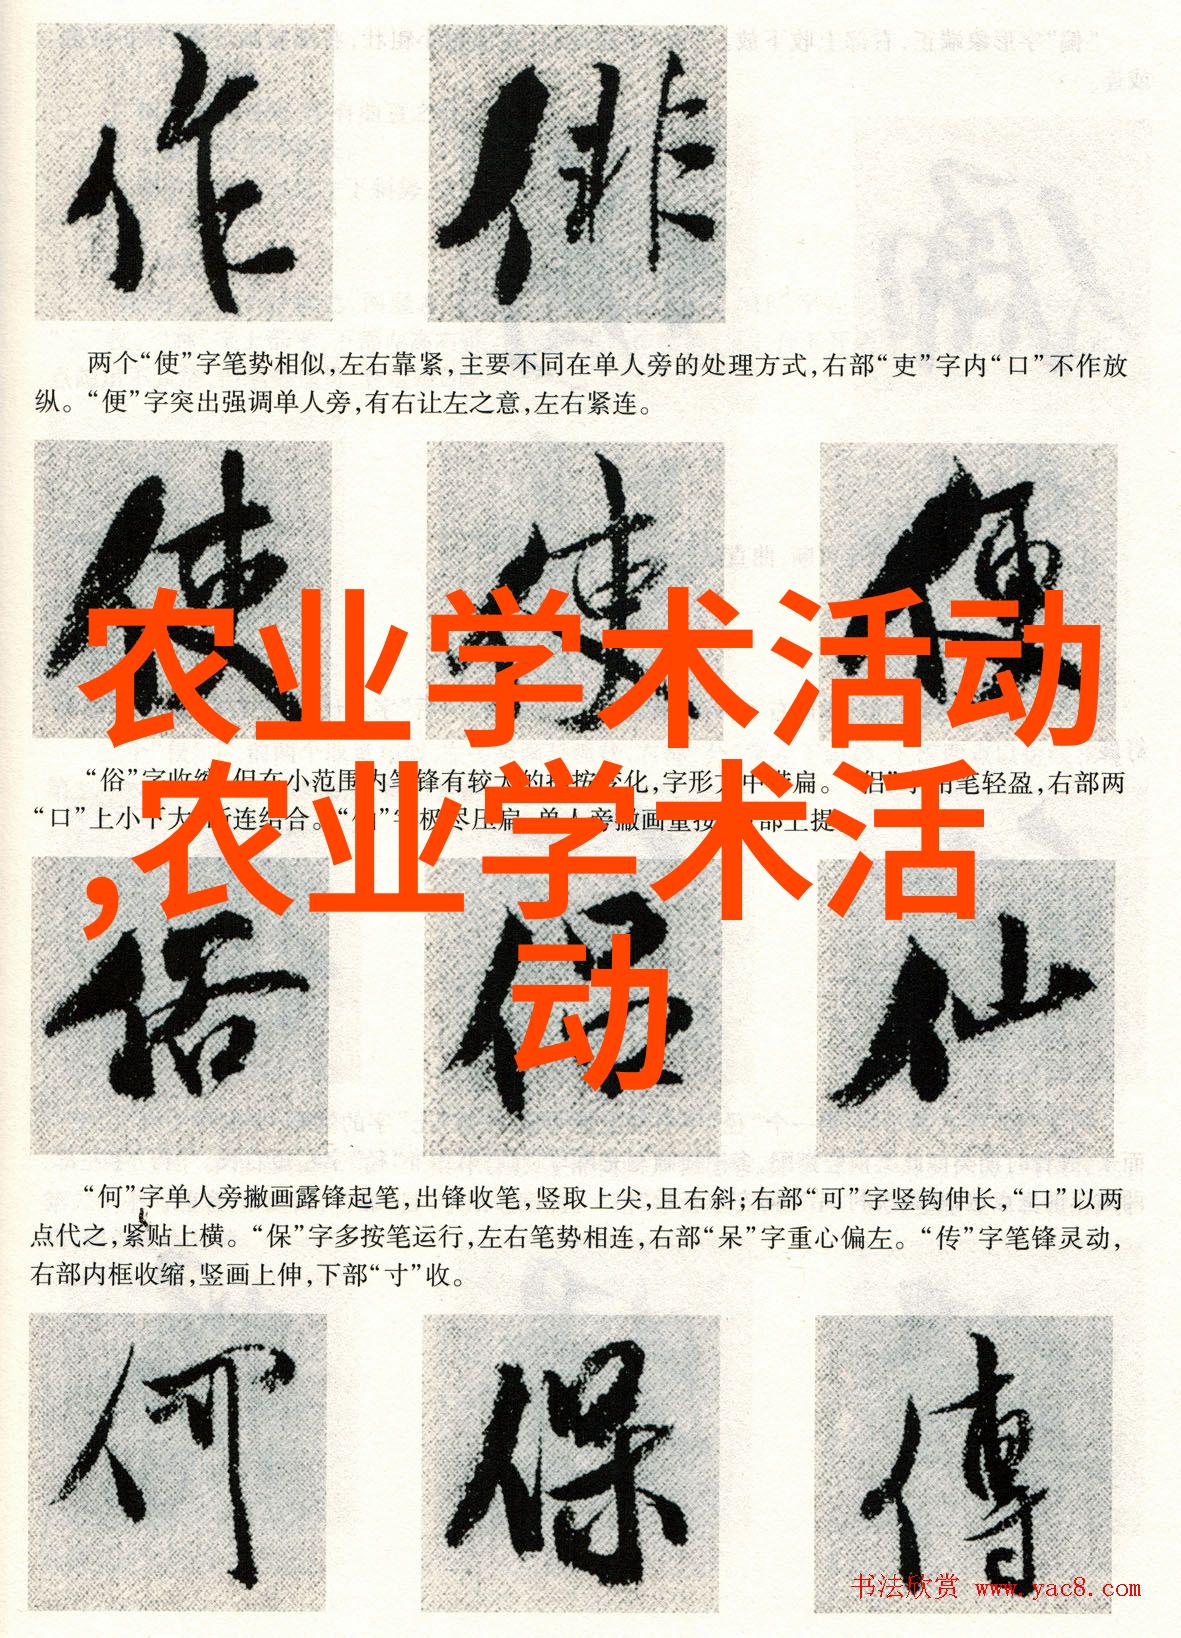 作 俳
两个“使”字笔势相似,左右靠紧,主要不同在单人旁的处理方式,右部“吏”字内“口”不作放
纵。“便”字突出强调单人旁,有右让左之意,左右紧连。
使 使 便
农业学术活动
“俗”字收缩,但在小范围内笔锋有较大的 变化,字形 扁。“侣”字用笔轻盈,右部两
“口”上小下大,断连结合。“仙”字极尽压扁,单人旁撇画重按, 部上提
,农业学术活
俗 侣 仙
动
“何”字单人旁撇画露锋起笔,出锋收笔,竖取上尖,且右斜;右部“可”字竖钩伸长,“口”以两
点代之,紧贴上横。“保”字多按笔运行,左右笔势相连,右部“呆”字重心偏左。“传”字笔锋灵动,
右部内框收缩,竖画上伸,下部“寸”收。
何 保 傳
书法欣赏 www.yac8.com